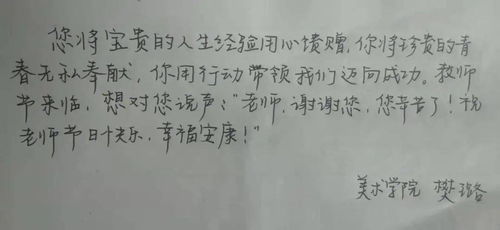 您将宝贵的人生经验用心馈赠,你将珍贵的青
春无私奉献,你用行动带领我们迈向成功。教师
节来临,想对您说声:"老师,谢谢您,您辛苦了!祝
老师节日快乐,幸福安康!"
美术学院 樊璐